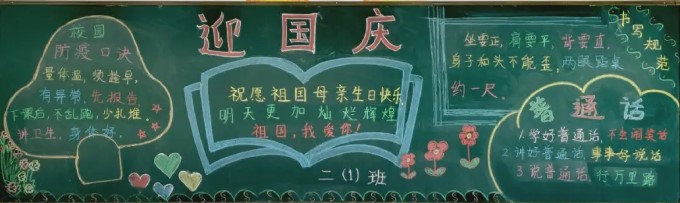 校园
防疫口决
量体温，须趁早，
有异常，先报告。
下课后，不乱跑，少扎堆，
讲卫生，身体好。
迎国庆
祝愿祖国母亲生日快乐
明天更加灿烂辉煌
祖国，我爱你！
二⑴班
坐要正，肩要平，背要直，
身子和头不能歪，两眼距桌
约一尺。
书写规范
普通话
1.学好普通话，不生闹笑话
2.讲好普通话，事事好说话
3.说普通话，行万里路